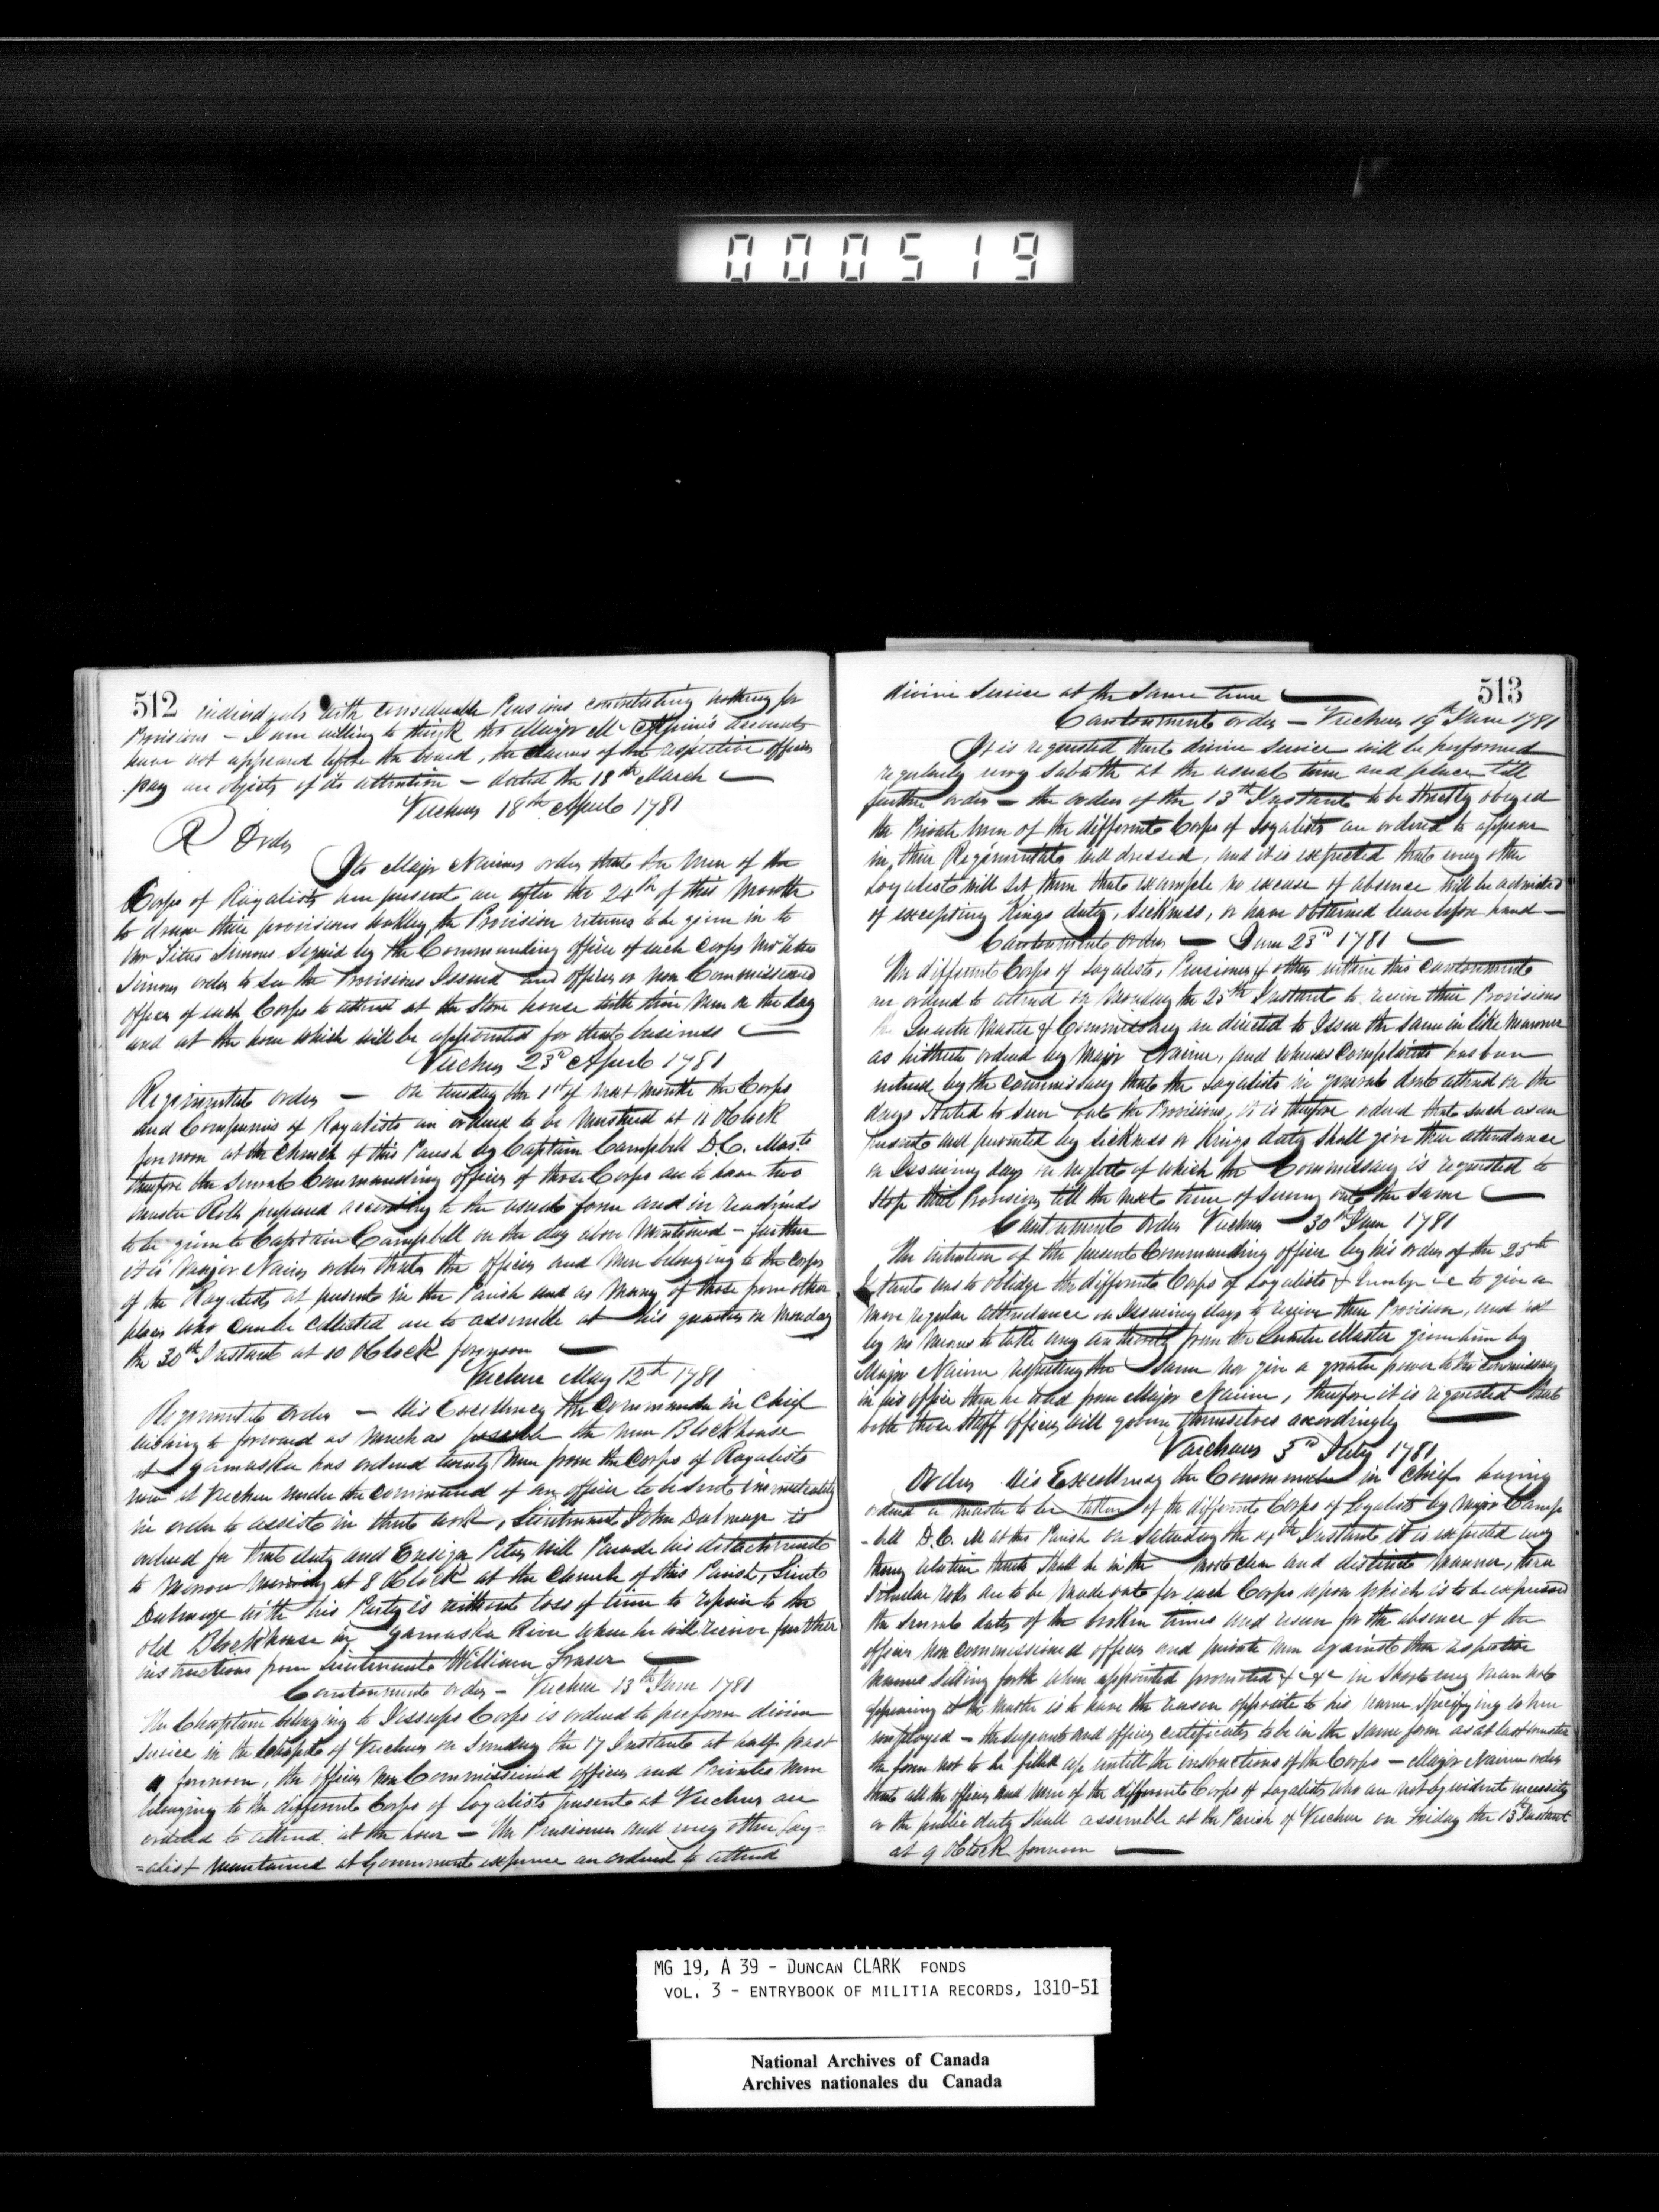 000519
512 individuals with considerable Pensions contributing nothing for
Provisions - I am willing to think tho Major Mc Alpin's accounts
have not appeared before the board, the claims of the respective officers
pay are objects of its attention - dated the 18th March
Vercheu 18th Aprile 1781
R Order
Its Major Nairns order that the men of the
Corps of Royalists here present are after the 24th of this Month
to draw their provisions weekly, the Provision returns to be given in to
Mr Titus Simons Signed by the Commanding officer of each Corps Mr Titus
Simons order to see the Provisions Issued and officer or non Commissioned
officer of each Corps to attend at the Store house with their Men on the day
and at the hour which will be appointed for that business
Vercheu 23d Aprile 1781
Regimental order - On tuesday the 1st of next month the Corps
and Companies of Royalists are ordered to be Mustered at 11 OClock
forenoon at the Church of this Parish by Captain Campbell D.C. Mast.
therefore the Several Commanding officers of those Corps are to have two
Muster Rolls prepared according to the usual form and in readiness
to be given to Captain Campbell on the day above Mentioned - further
it is Major Nairns order that the officers and Men belonging to the Corps
of the Royalists at present in the Parish and as Many of those from other
places who can be collected are to assemble at his quarters on Monday
the 30th Instant at 10 OClock forenoon
Vercheu May 12th 1781
Regimental order - His Excellency the Commander in Chief
wishing to forward as much as possible the new Blockhouse
at Yamaska has ordered twenty Men from the Corps of Royalists
now at Vercheu under the command of an officer to be sent immediately
in order to assist in that work, Lieutenant John Dulmage is
ordered for that duty and Ensign Peters will Parade his detachment
to Morrow Morning at 8 OClock at the Church of this Parish, Lieut
Dulmage with his Party is without loss of time to repair to the
old Blockhouse in Yamaska River where he will receive further
instructions from Lieutenant William Fraser
Cantonment order - Vercheu 13th June 1781
The Chaplain belonging to Jessups Corps is ordered to perform divine
service in the Chapel of Vercheu on Sunday the 17 Instant at half past
forenoon, the officers non Commissioned officers and Private Men
belonging to the different Corps of Loyalists present at Vercheu are
ordered to attend at the hour - The Pensioners and every other Loy=
=alist maintained at Government expence are ordered to attend
513
divine Service at the Same time
Cantonment order - Vercheu 19th June 1781
It is requested that divine Service will be performed
regularly every Sabath at the usual time and place till
further order - the orders of the 13th Instant to be strictly obeyed
the Private Men of the different Corps of Loyalists are ordered to appear
in their Regimentals well dressed, and it is expected that every other
Loyalist will Set them that example no excuse of absence will be admitted
of excepting Kings duty, Sickness, or have obtained leave before hand -
Cantonment order - June 23d 1781
The different Corps of Loyalists, Pensioners & others within this cantonment
are ordered to attend on Monday the 25th Instant to receive their Provisions
the Quarter Master & Commissary are directed to Issue the same in like Manner
as hitherto ordered by Major Nairne, and whereas Complaints has been
entered by the Commissary that the Loyalists in general dont attend on the
days Stated to Serve out the Provisions, it is therefore ordered that such as are
present and prevented by Sickness or Kings duty Shall give their attendance
on Issuing days in neglect of which the Commissary is requested to
Stop their Provisions till the next time of Serving out the Same
Cantonment order Vercheu - 30th June 1781
The intention of the present Commanding officer by his order of the 25th
Instant was to obledge the different Corps of Loyalists & to give a
more regular attendance on Issuing days to receive their Provision, and not
by no means to take any authority from the Quarter Master given him by
Major Nairne respecting the Same nor give a greater power to the Commissary
in his office then he had from Major Nairne, therefore it is requested that
both these Staff officers will govern themselves accordingly
Varcheurs 3d July 1781
Order His Excellency the Commander in Chief having
ordered a muster to be taken of the different Corps of Loyalists by Major Camp
-bell D.C. M at this Parish on Saturday the 14th Instant it is expected every
thing relative thereto Shall be in the most clear and distinct Manner, three
Rolls are to be Made out for each Corps upon which is to be expressed
the Several dates of the broken times and reason for the absence of the
officers Non commissioned officers and private Men against their respective
names Setting forth when appointed promoted &c &c in Short every Man not
appearing at the Muster is to have the reason opposite to his name Specifying where
employed - the Surgeants and officers certificates to be in the Same form as at last muster
the form not to be filled up untill the instructions of the Corps - Major Nairne orders
that all the officers and Men of the different Corps of Loyalists who are not by evident necessity
or the public duty Shall assemble at the Parish of Vercheu on Friday the 13th Instant
at 9 OClock forenoon
MG 19, A 39 - DUNCAN CLARK FONDS
VOL. 3 - ENTRYBOOK OF MILITIA RECORDS, 1810-51
National Archives of Canada
Archives nationales du Canada